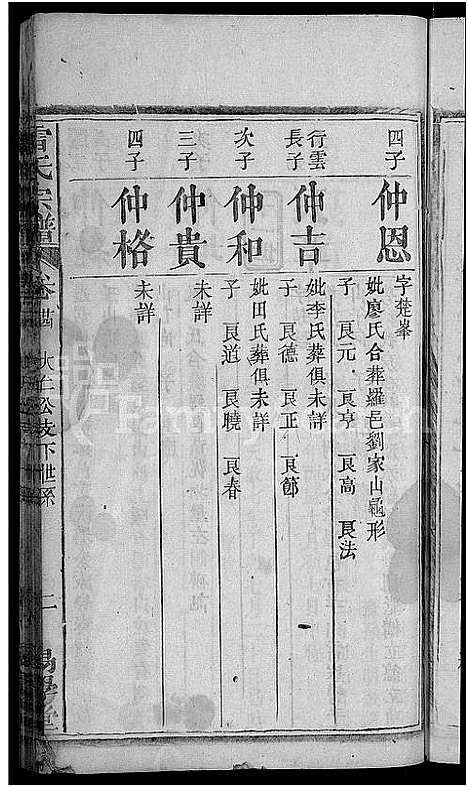 四子
仲恩
字楚峯
妣廖氏合葬羅邑劉家山龜形
子 艮元 艮亨 艮高 艮法
行雲
長子
仲吉
妣李氏葬俱未詳
子 艮德 艮正 艮節
次子
仲和
妣田氏葬俱未詳
子 艮道 艮曉 艮春
三子
仲貴
未詳
四子
仲格
未詳
雷氏宗譜
大仁公支下世系
二